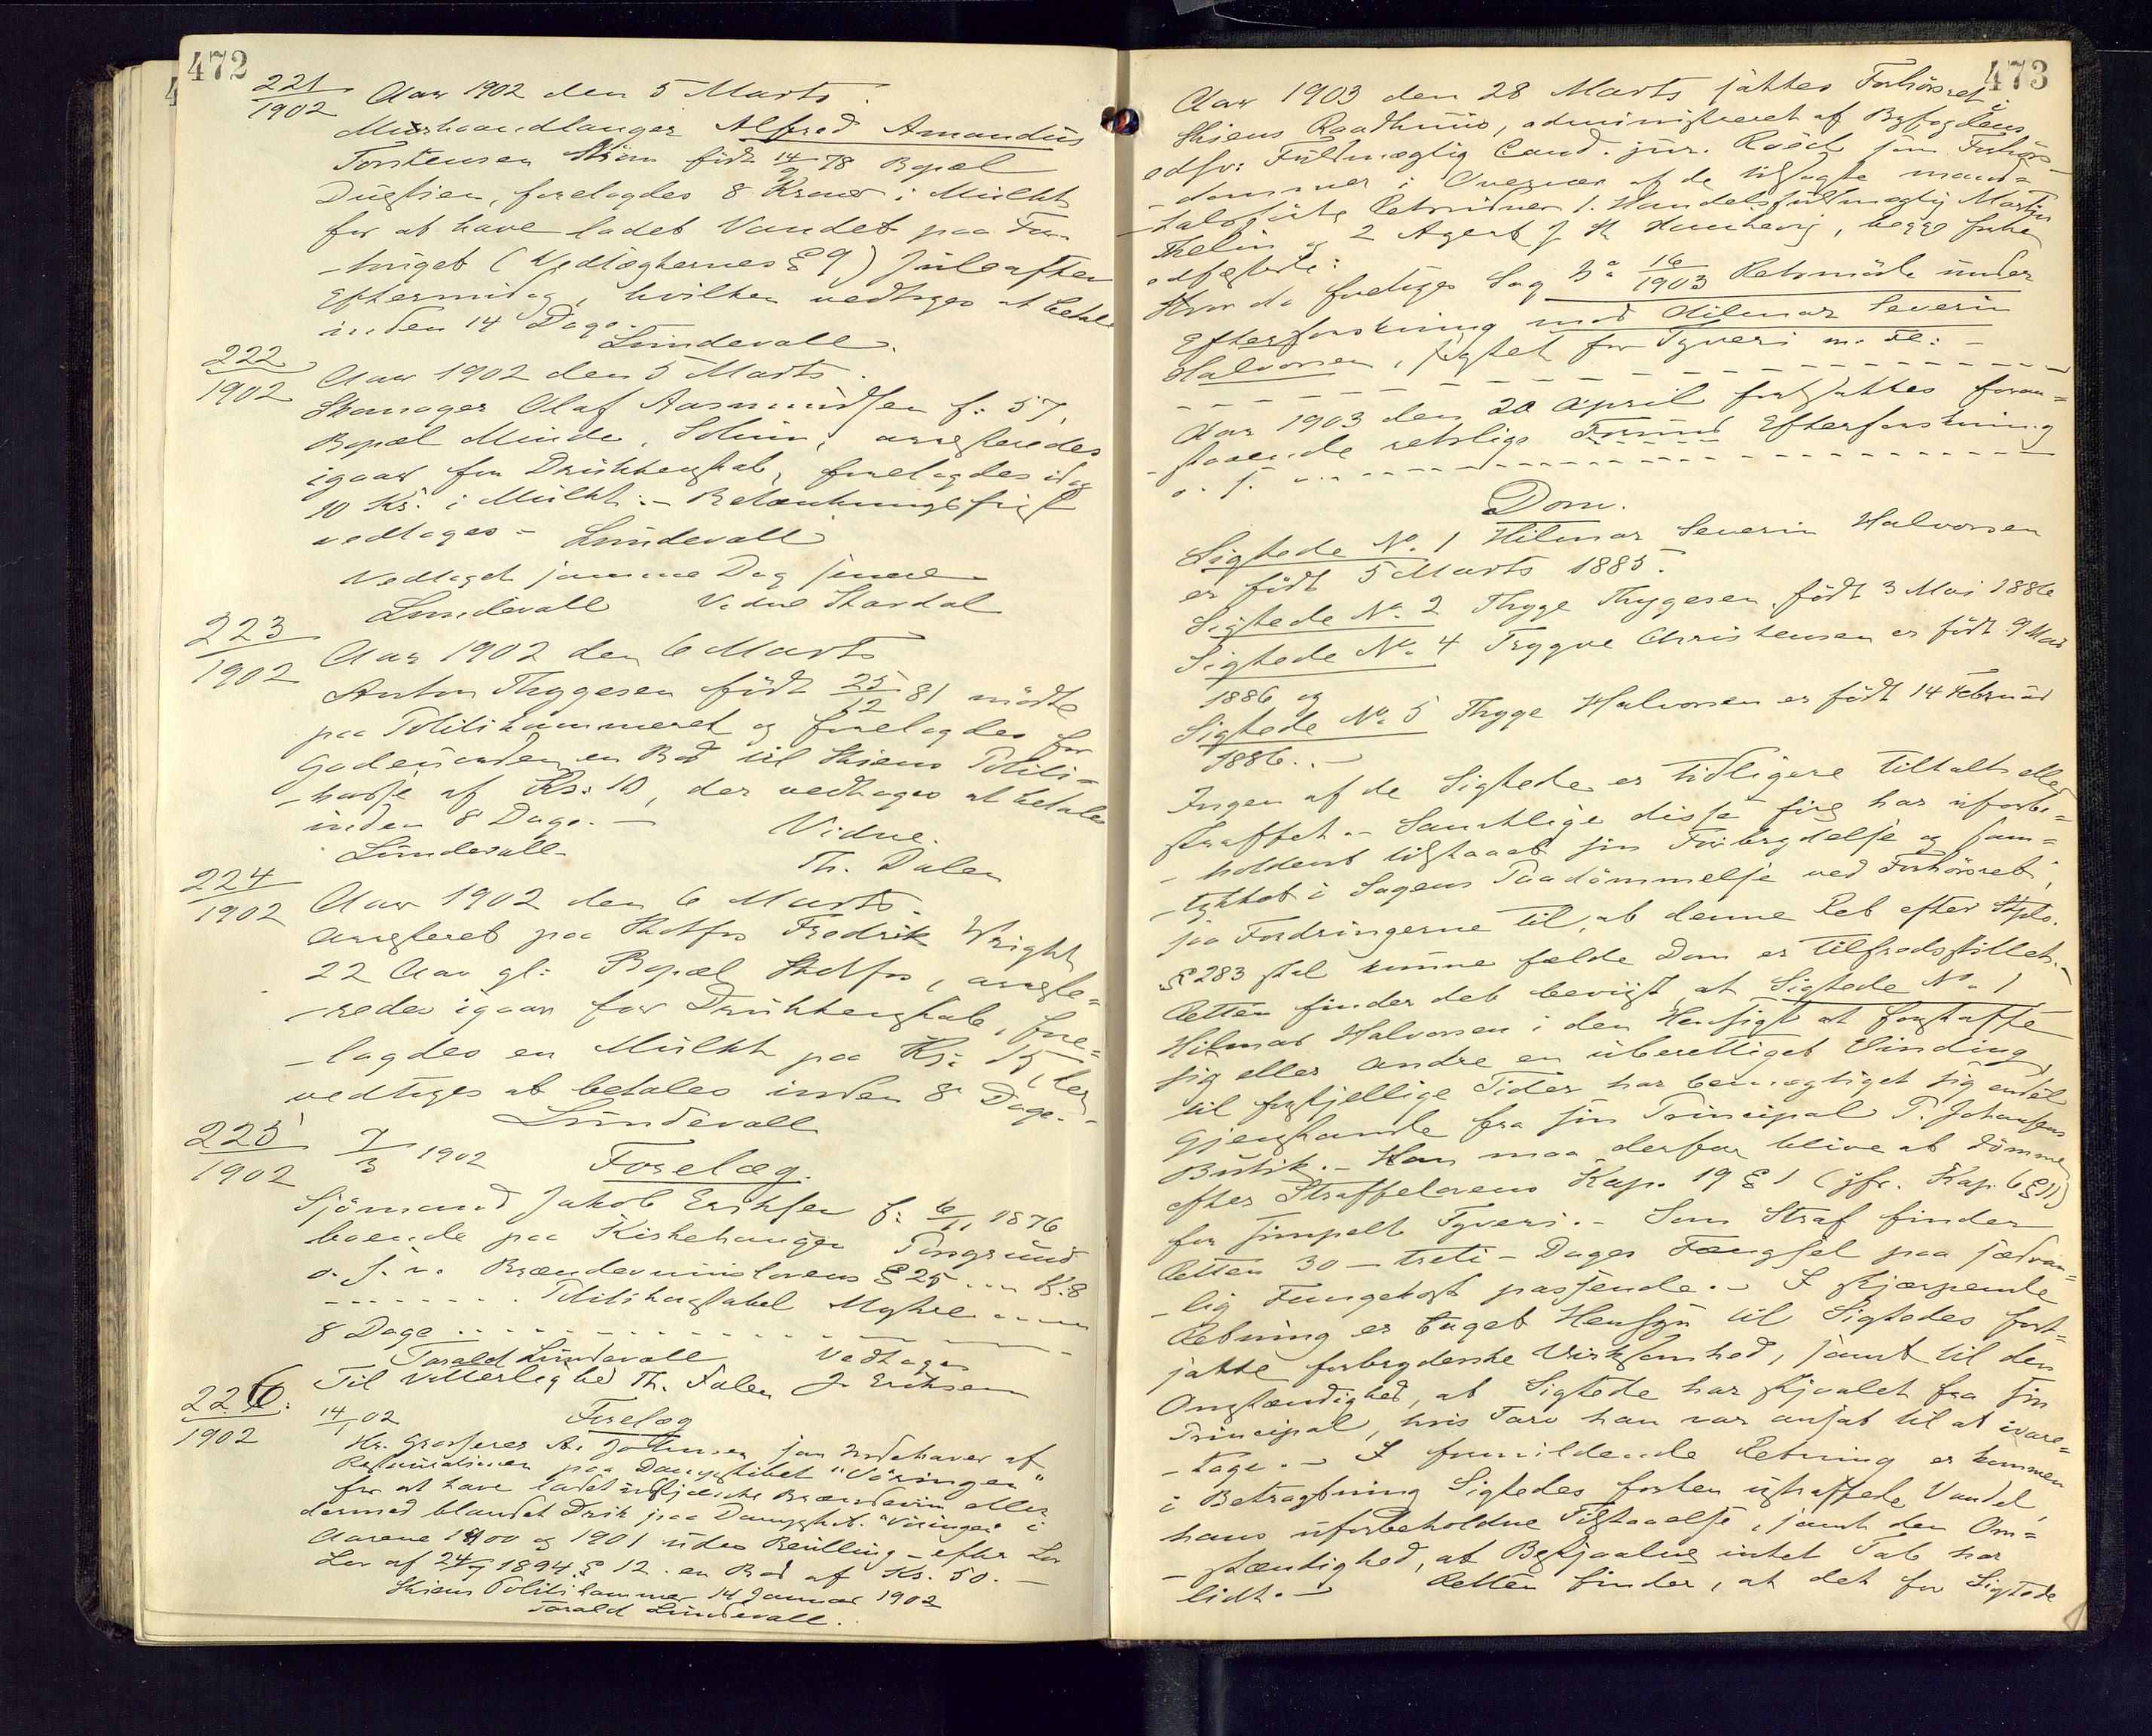 472
221
1902
Aar 1902 den 5 Marts.
Murhaandlanger Alfred Amandus
Torstensen Strøm født 14/9 78 Bopæl
Duestien, forelagdes 8 Kroner i Mulkt
for at have ladet Vandet paa
(Vedtægternes § 9) Juleaften
Eftermidag, hvilken vedtages at betale
inden 14 Dage.
Lundevall.
222
1902
Aar 1902 den 5 Marts.
Skomager Olaf Aasmundsen f: 57,
Bopæl Minde, Solum, arresteredes
igaar for Drukkenskab, forelagdes idag
10 Kr. i Mulkt. – Betænkningsfrist
vedtages – Lundevall
Vedtaget samme Dag senere
Lundevall Vidne Stardal
223
1902
Aar 1902 den 6 Marts
Anton Thygesen født 25/12 81 mødte
paa Politikammeret og forelagdes for
Gadeuorden en Bod til Skiens Politi-
-kasse af Kr: 10, der vedtages at betales
inden 8 Dage. –
Lundevall – Vidne.
Th. Dalen
224
1902
Aar 1902 den 6 Marts.
Arresteret paa Skotfos Fredrik Wright
22 Aar gl: Bopæl Skotfos, arreste=
-redes igaar for Drukkenskab, fore=
-lagdes en Mulkt paa Kr: 15, der
vedtages at betales inden 8 Dage. –
Lundevall
225
1902
7/3 1902 Forelæg.
Sjømand Jakob Eriksen f: 6/11 1876
boende paa Kirkehaugen Porsgrund
o. s. v. Brændevinslovens § 25 .... K. 8
....... Politikonstabel Myhre .....
8 Dage ............
Tarald Lundevall Vedtages
Til Vitterlighed Th. Dalen J. Eriksen
226:
1902
14/1 02 Forelæg
Hr. Grosserer A. Johnsen som Indehaver af
Restaurationen paa Dampskibet "Vøringen"
for at have ladet udskjænke Brændevin eller
dermed blandet Drik paa Dampskib. "Vøringen" i
Aarene 1900 og 1901 uden Bevilling – efter Lov
Lov af 24/7 1894 § 12. en Bod af Kr. 50. –
Skiens Politikammer 14 Januar 1902
Tarald Lundevall.
473
Aar 1903 den 28 Marts sattes Forhørsret i
Skiens Raadhuus, administreret af Byfogdens
edsv: Fuldmægtig Cand. jur. Roëd som Forhørs-
-dommer i Overvær af de tilsagte mand=
-talsførte Retsvidner 1. Handelsfuldmægtig Martin
Thelin og 2 Agent J. H. Houchery, begge forhen
edfæstede:
Hvor da foretoges Sag No 16/1903 Retsmøde under
Efterforskning mod Hilmar Severin
Halvorsen, sigtet for Tyveri m. Fl: –
Aar 1903 den 20 April fortsattes foran=
-staaende retslige Efterforskning
o. s. v.
Dom.
Sigtede No. 1 Hilmar Severin Halvorsen
er født 5 Marts 1885.
Sigtede No. 2 Thygge Thygesen, født 3 Mai 1886
Sigtede No. 4 Trygve Christensen er født 9 Mai
1886 og
Sigtede No. 5 Thygge Halvorsen er født 14 Februar
1886. –
Ingen af de Sigtede er tidligere tiltalt eller
straffet. – Samtlige disse fire har uforbe=
-holdent tilstaaet sin Forbrydelse og sam=
-tykket i Sagens Paadømmelse ved Forhørsret,
saa Fordringerne til, at denne Ret efter Stplo.
§ 283 skal kunne fælde Dom er tilfredsstillet. –
Retten finder det bevist, at Sigtede No. 1
Hilmar Halvorsen i den Hensigt at forskaffe
sig eller andre en uberettiget Vinding
til forskjellige Tider har bemægtiget sig endel
Gjenstande fra sin Principal P. Johansens
Butik. – Han maa derfor blive at dømme
efter Straffelovens Kap. 19 § 1 (jfr. Kap. 6 § 11)
for simpelt Tyveri. – Som Straf finder
Retten 30 – treti – Dages Fængsel paa sædvan=
-lig Fangekost passende. – I skjærpende
Retning er taget Hensyn til Sigtedes fort=
satte forbryderske Virksomhed, samt til den
Omstændighed, at Sigtede har stjaalet fra sin
Principal, hvis Tarv han var ansat til at ivare=
-tage. – I formildende Retning er kommen
i Betragtning Sigtedes forhen ustraffede Vandel,
hans uforbeholdne Tilstaaelse, samt den Om=
-stændighed, at Bestjaalne intet Tab har
lidt. – Retten finder, at det for Sigtede